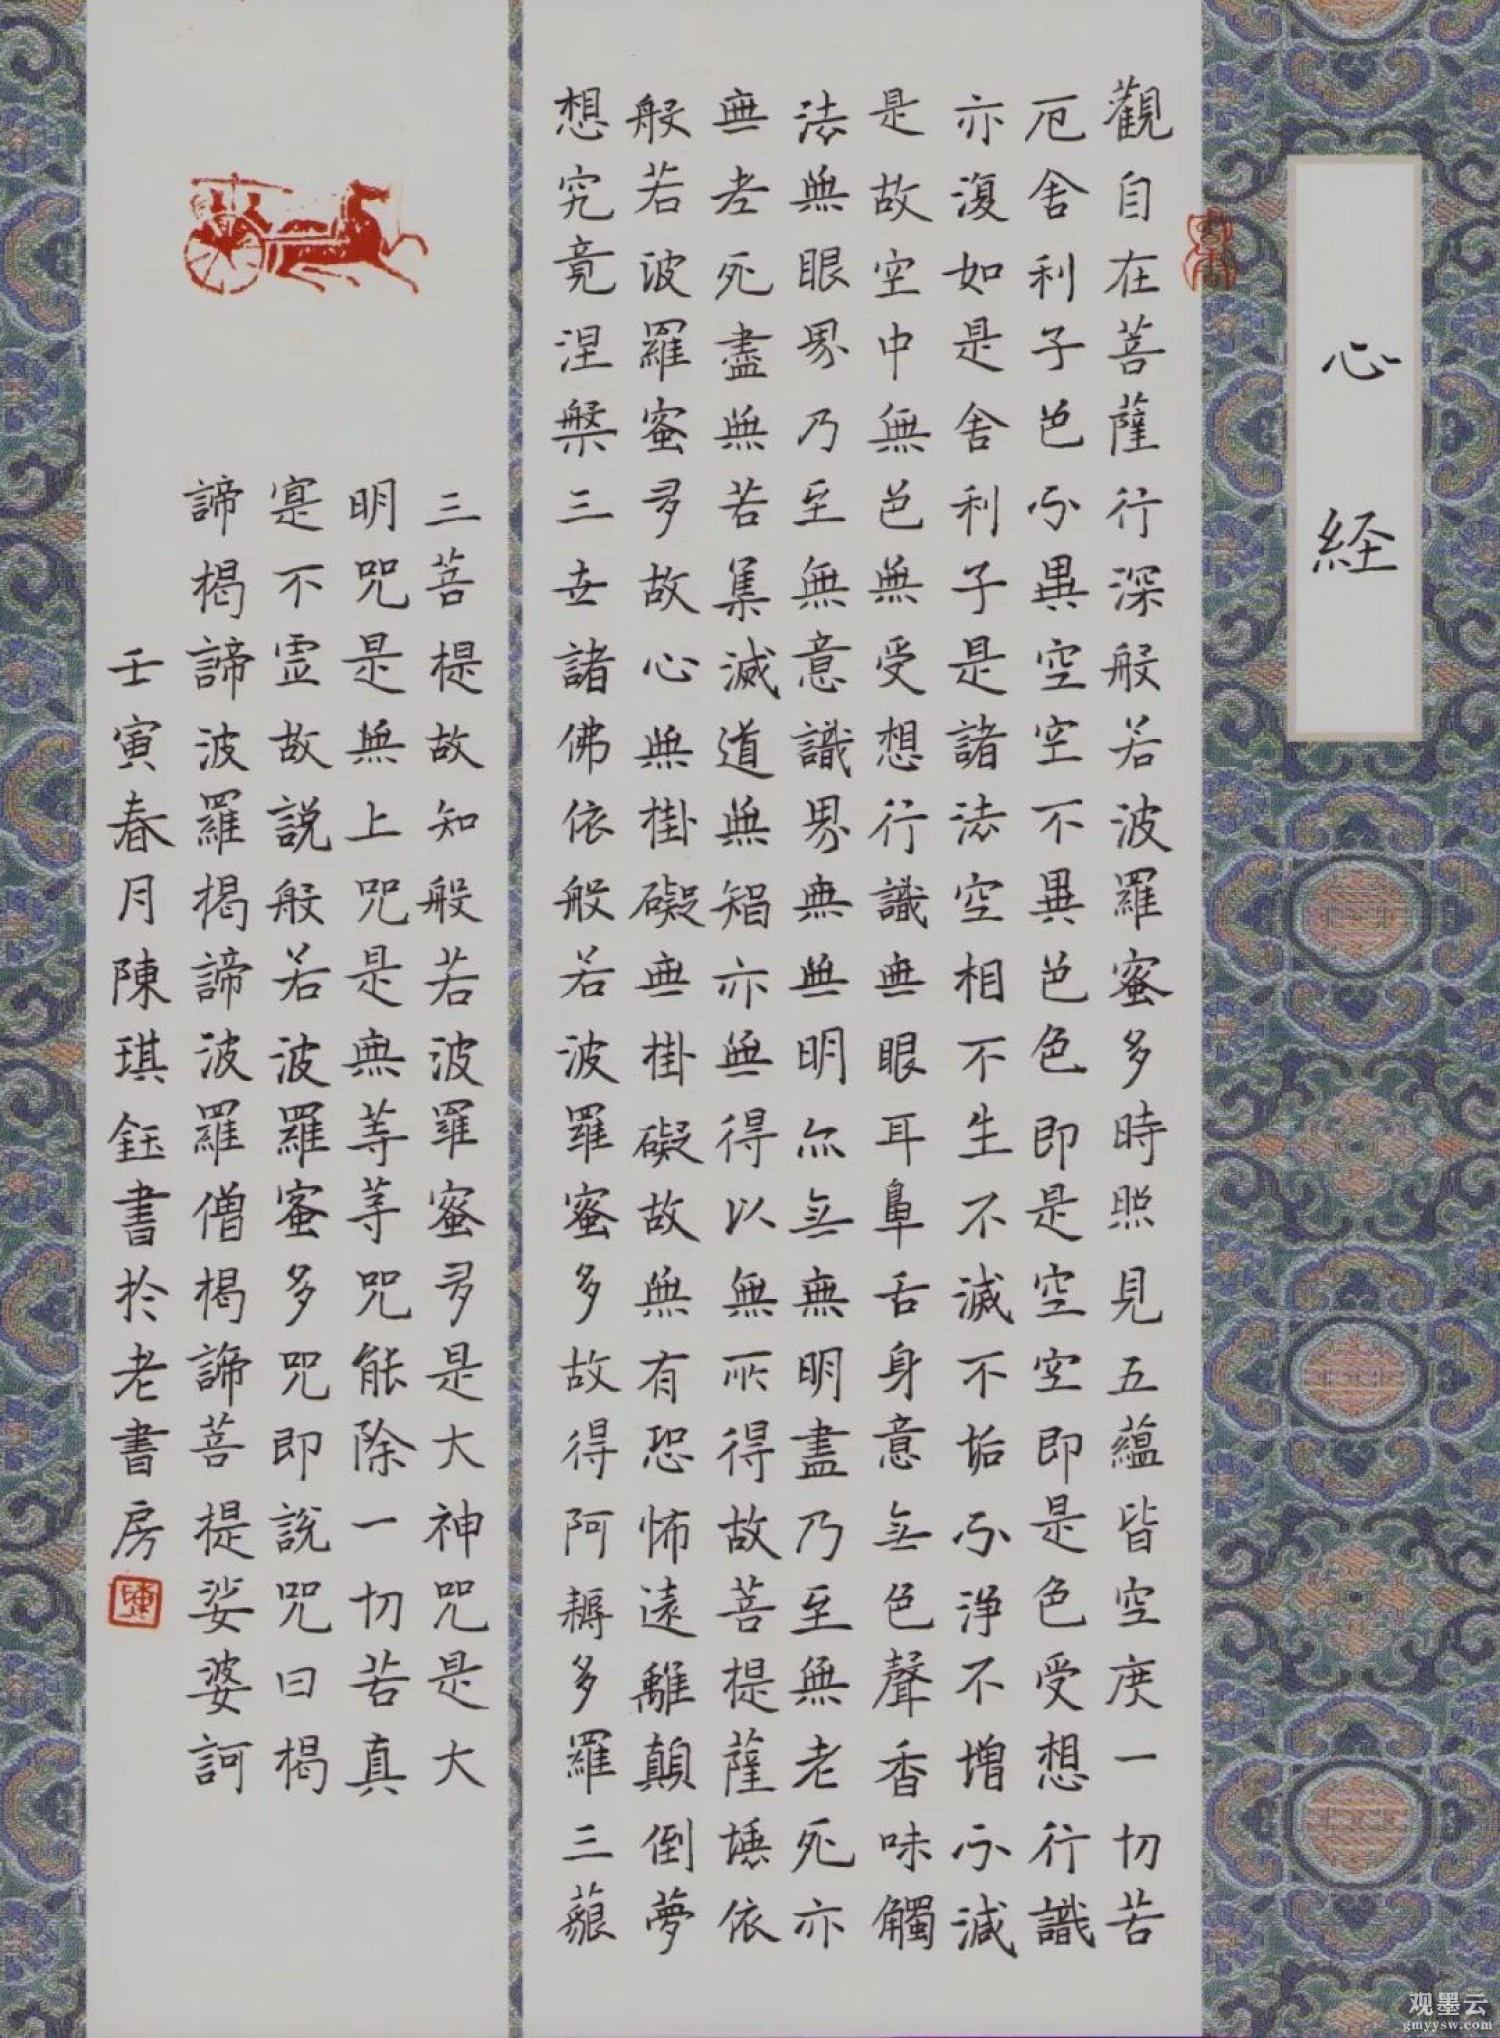 心経
觀自在菩薩行深般若波羅蜜多時照見五蘊皆空度一切苦
厄舍利子色不異空空不異色色即是空空即是色受想行識
亦復如是舍利子是諸法空相不生不滅不垢不淨不增不減
是故空中無色無受想行識無眼耳鼻舌身意無色聲香味觸
法無眼界乃至無意識界無無明亦無無明盡乃至無老死亦
無老死盡無苦集滅道無智亦無得以無所得故菩提薩埵依
般若波羅蜜多故心無掛礙無掛礙故無有恐怖遠離顛倒夢
想究竟涅槃三世諸佛依般若波羅蜜多故得阿耨多羅三藐
三菩提故知般若波羅蜜多是大神咒是大
明咒是無上咒是無等等咒能除一切苦真
寔不虛故説般若波羅蜜多咒即説咒曰揭
諦揭諦波羅揭諦波羅僧揭諦菩提娑婆訶
壬寅春月陳琪鈺書於老書房
陳
观墨云
gmyysw.com